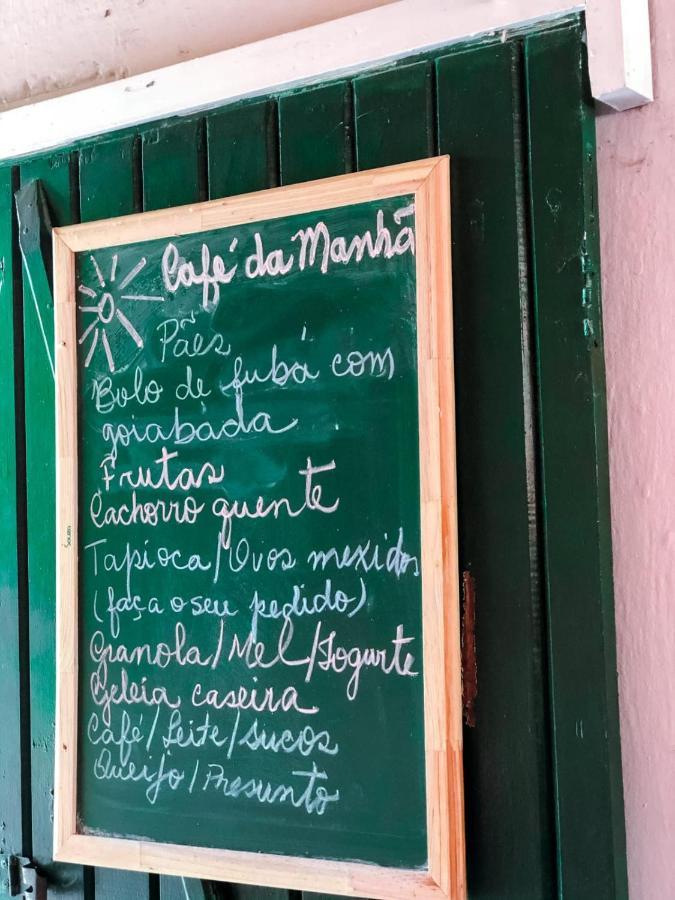 Café da Manhã
Pães
Bolo de fubá com
goiabada
Frutas
Cachorro quente
Tapioca/Ovos mexidos
(faça o seu pedido)
Granola/Mel/Iogurte
Geleia caseira
Café/Leite/sucos
Queijo/Presunto